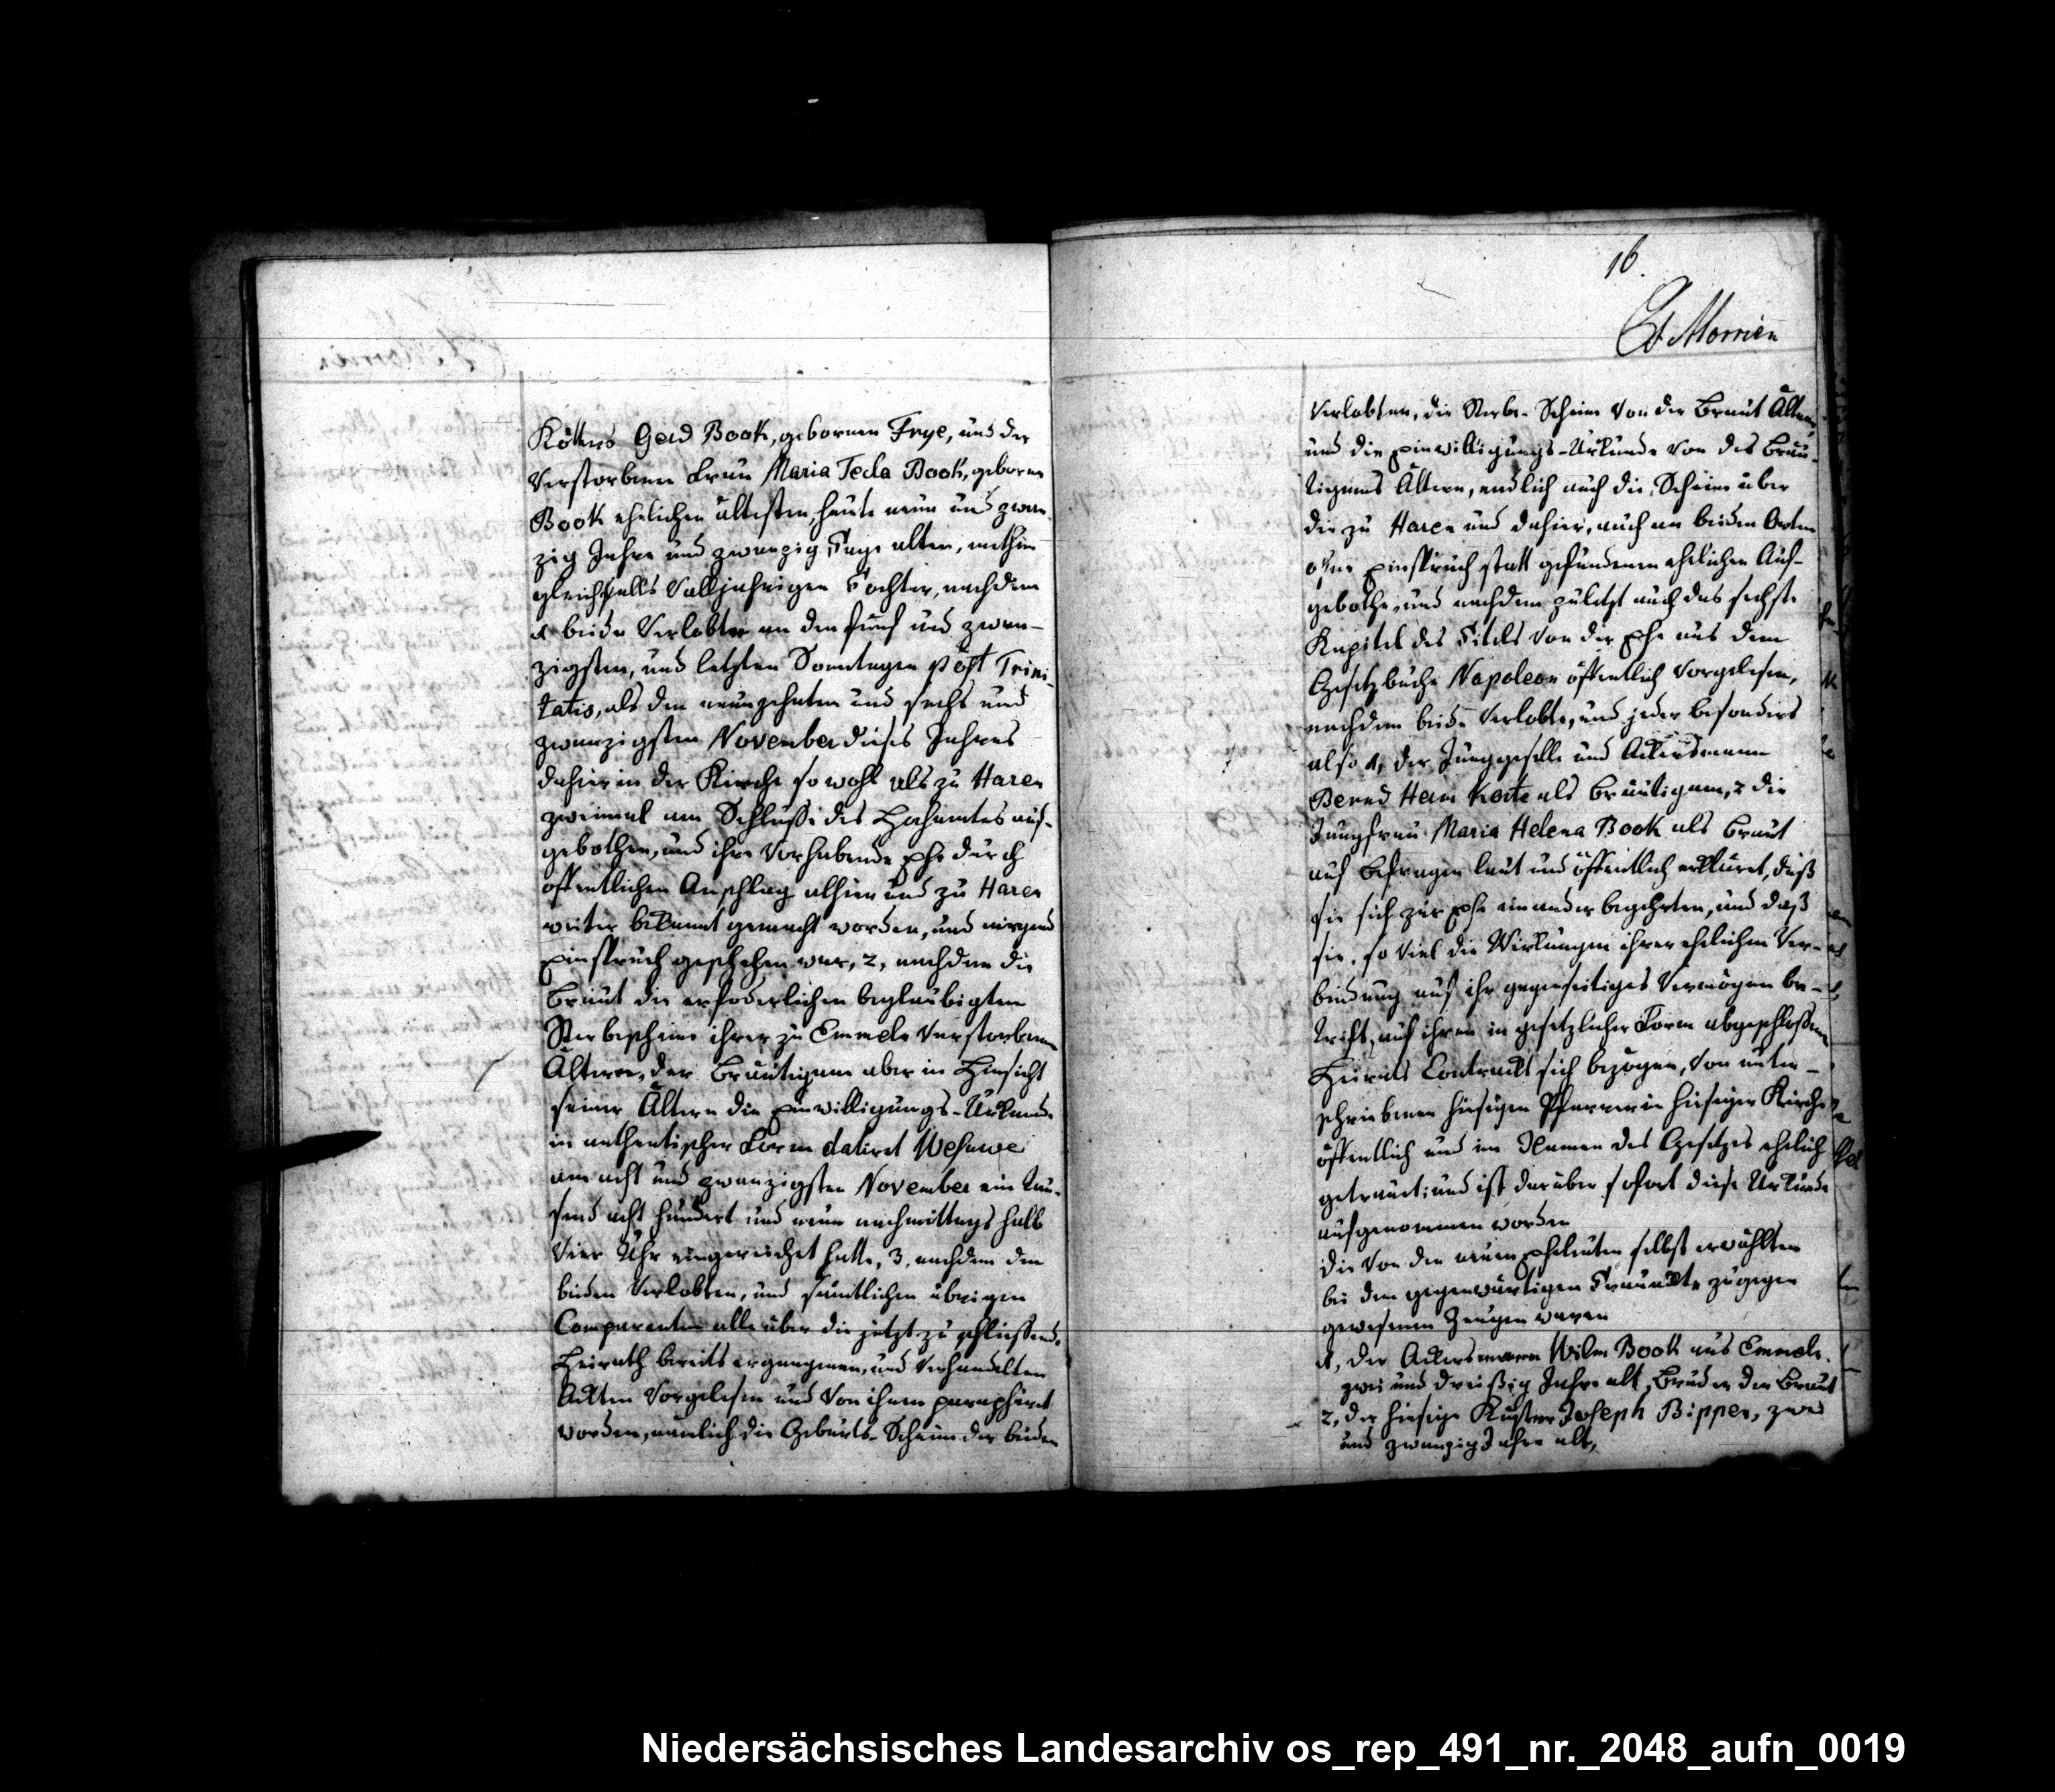 Kötters Gerd Book, gebornen Frye, und der
verstorbenen Frau Maria Tecla Book, geborne
Book ehelichen ältesten, heute neun und zwan-
zig Jahre und zwanzig Tage alten, mithin
gleichfalls volljährigen Tochter, nachdem
1 beide Verlobte an den fünf und zwan-
zigsten, und letzten Sonntagen post Trini-
tatis, als den neunzehnten und sechs und
zwanzigsten November dieses Jahres
dahier in der Kirche so wohl als zu Haren
zweimal am Schlusse des Hochamtes auf-
gebothen, und ihre vorhabende Ehe durch
öffentlichen Anschlag alhier und zu Haren
weiter bekannt gemacht worden, und nirgend
Einspruch geschehen war, 2, nachdem die
Braut die erforderlichen beglaubigten
Sterbescheine ihrer zu Emmeln verstorbenen
Ältern, der Bräutigam aber in Hinsicht
seiner Ältern die Einwilligungs-Urkunde
in authentischer Form datiret Wesuwe
am acht und zwanzigsten November ein tau-
send acht hundert und neun nachmittags halb
vier Uhr eingereichet hatte, 3, nachdem den
beiden Verlobten, und sämtlichen übrigen
Comparenten alle über die jetzt zu schließende
Heirath bereits ergangenen, und verhandelten
Ackten vorgelesen und von ihnen paraphiret
worden, nemlich die Geburts-Scheine der beiden
16.
Morrien
Verlobten, die Sterbe-Scheine von der Braut Ältern,
und die Einwilligungs-Urkunde von des Bräu-
tigams Ältern, endlich auch die Scheine über
die zu Haren und dahier, auch an beiden Orten
ohne Einspruch statt gefundenen ehelichen Auf-
gebothe, und nachdem zuletzt auch das sechste
Kapitel des Titels von der Ehe aus dem
Gesetzbuche Napoleon öffentlich vorgelesen,
nachdem beide Verlobte, und jeder besonders
also 1, der Junggeselle und Ackersmann
Bernd Herm Korte als Bräutigam, 2 die
Jungfrau Maria Helena Book als Braut
auf Befragen laut und öffentlich erkläret, daß
sie sich zur Ehe einander begehrten, und daß
sie, so viel die Wirkungen ihrer ehelichen Ver-
bindung auf ihr gegenseitiges Vermögen be-
trift, auf ihren in gesetzlicher Form abgeschlossenen
Heirats Contrackt sich bezogen, von unter-
schriebenen hiesigen Pfarrer in hiesiger Kirche
öffentlich und im Namen des Gesetzes ehelich
getrauet; und ist darüber sofort diese Urkunde
aufgenommen worden
die von den neuen Eheleuten selbst erwählten
bei dem gegenwärtigen zugegen
gewesenen Zeugen waren
1, der Ackersmann Wilm Book aus Emmeln.
zwei und dreißig Jahre alt, Bruder der Braut
2, der hiesige Küster Joseph Bipper, zwei
und zwanzig Jahre alt,
Niedersächsisches Landesarchiv os_rep_491_nr._2048_aufn_0019